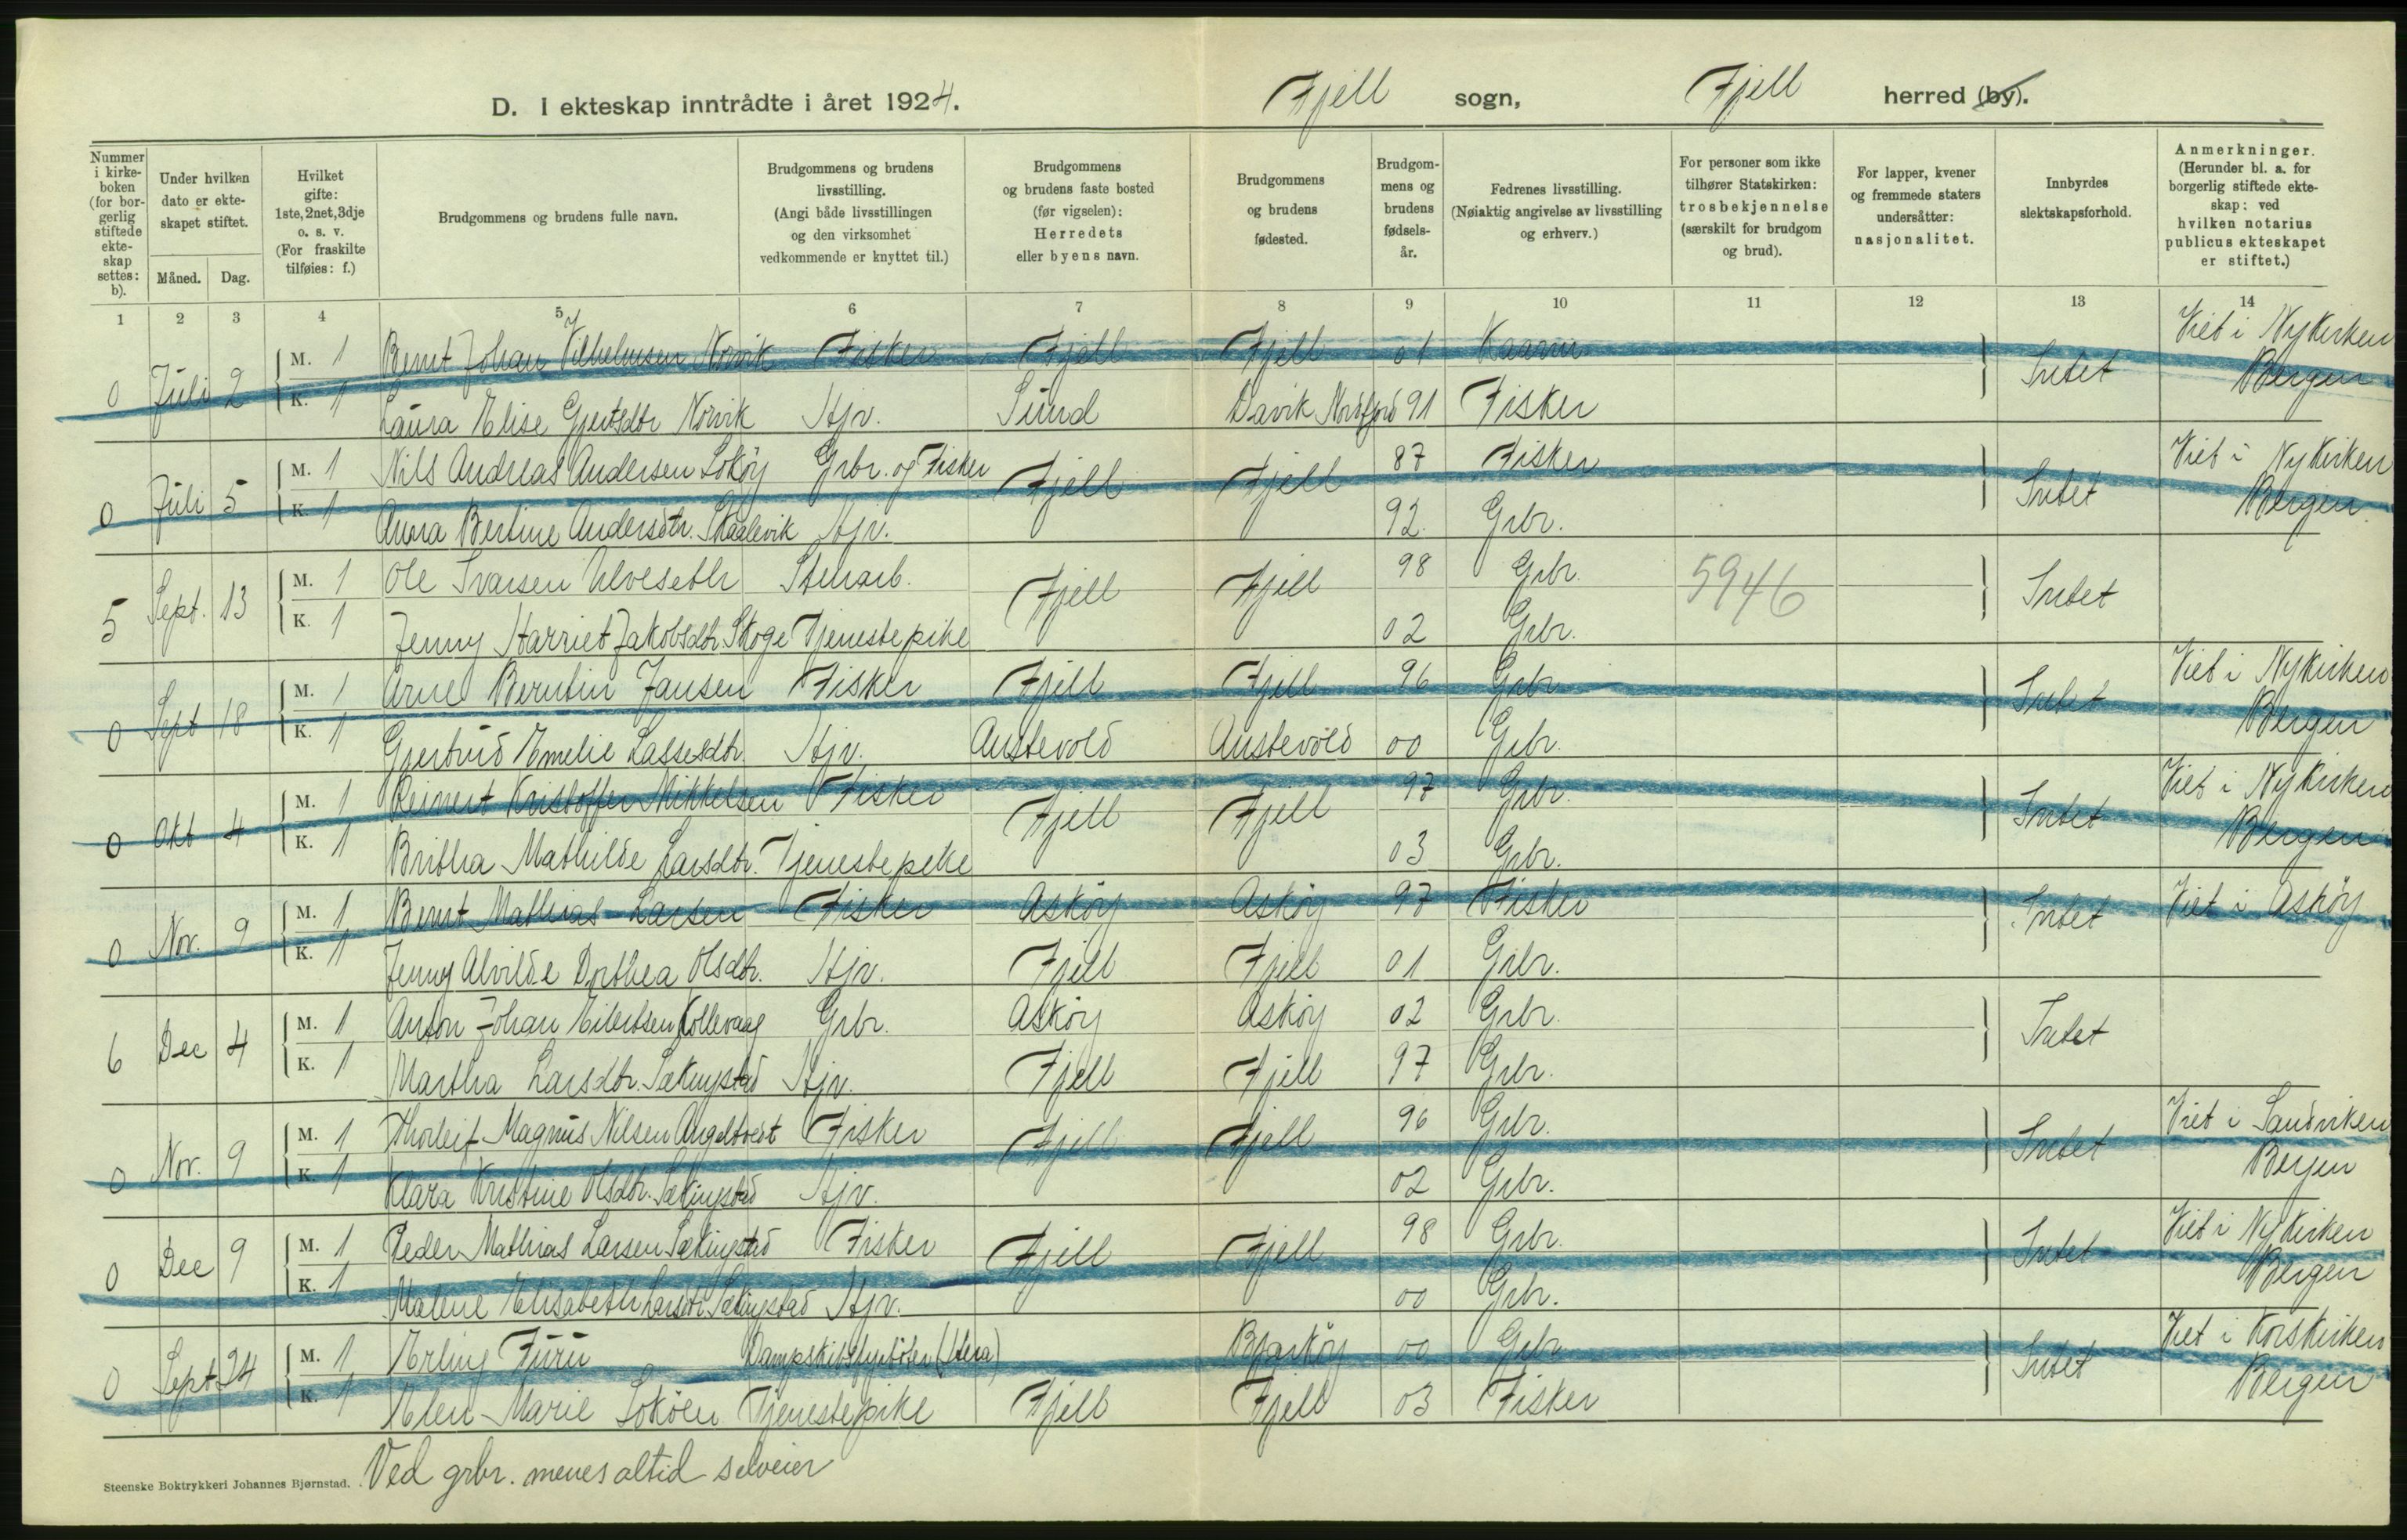 D. I ekteskap inntrådte i året 1924. Fjell sogn, Fjell herred (by).
Nummer i kirkeboken (for borgerlig stiftede ekteskap settes: b).
Under hvilken dato er ekteskapet stiftet.
Måned. Dag.
Hvilket gifte: 1ste, 2net, 3dje o. s. v. (For fraskilte tilføies: f.)
Brudgommens og brudens fulle navn.
Brudgommens og brudens livsstilling. (Angi både livsstillingen og den virksomhet vedkommende er knyttet til.)
Brudgommens og brudens faste bosted (før vigselen): Herredets eller byens navn.
Brudgommens og brudens fødested.
Brudgommens og brudens fødselsår.
Fedrenes livsstilling. (Nøiaktig angivelse av livsstilling og erhverv.)
For personer som ikke tilhører Statskirken: trosbekjennelse (særskilt for brudgom og brud).
For lapper, kvener og fremmede staters undersåtter: nasjonalitet.
Innbyrdes slektskapsforhold.
Anmerkninger. (Herunder bl. a. for borgerlig stiftede ekteskap: ved hvilken notarius publicus ekteskapet er stiftet.)
1 2 3 4 5 6 7 8 9 10 11 12 13 14
0 Juli 2 M. 1 Bernt Johan Vilhelmsen Norvik Fisker Fjell Fjell 01 Intet Viet i Nykirken Bergen
K. 1 Laura Elise Gjertsdtr Norvik Hjv. Sund Davik Nordfjord 91 Fisker
0 Juli 5 M. 1 Nils Andreas Andersen Lokøy Grbr. og Fisker Fjell Fjell 87 Fisker Intet Viet i Nykirken Bergen
K. 1 Anna Bertine Andersdtr. Skaalevik Hjv. 92 Grbr.
5 Sept. 13 M. 1 Ole Ivarsen Ulveseth Stenarb. Fjell Fjell 98 Grbr. 5946 Intet
K. 1 Jenny Harriet Jakobsdtr. Skoge Tjenestepike 02 Grbr.
0 Sept 18 M. 1 Arne Berntin Jansen Fisker Fjell Fjell 96 Grbr. Intet Viet i Nykirken Bergen
K. 1 Gjertrud Emelie Lassesdtr. Hjv. Austevold Austevold 00 Grbr.
0 Okt 4 M. 1 Reinert Kristoffer Mikkelsen Fisker Fjell Fjell 97 Grbr. Intet Viet i Nykirken Bergen
K. 1 Britha Mathilde Larsdtr. Tjenestepike 03 Grbr.
0 Nov. 9 M. 1 Bernt Mathias Larsen Fisker Askøy Askøy 97 Fisker Intet Viet i Askøy
K. 1 Jenny Alvilde Dorthea Olsdtr. Hjv. Fjell Fjell 01 Grbr.
6 Dec 4 M. 1 Anton Johan Eilertsen Kollevaag Grbr. Askøy Askøy 02 Grbr. Intet
K. 1 Martha Larsdtr. Sekingstad Hjv. Fjell Fjell 97 Grbr.
0 Nov. 9 M. 1 Thorleif Magnus Nilsen Angeltveit Fisker Fjell Fjell 96 Grbr. Intet Viet i Sandviken Bergen
K. 1 Klara Kristine Olsdtr. Sekingstad Hjv. 02 Grbr.
0 Dec 9 M. 1 Peder Mathias Larsen Sekingstad Fisker Fjell Fjell 98 Grbr. Intet Viet i Nykirken Bergen
K. 1 Malene Elisabeth Larsdtr. Sekingstad Hjv. 00 Grbr.
0 Sept 24 M. 1 Erling Furu Bjarkøy 00 Grbr Intet Viet i Korskirken Bergen
K. 1 Elen Marie Lokøen Tjenestepike Fjell Fjell 03 Fisker
Steenske Boktrykkeri Johannes Bjørnstad. Ved grbr. menes altid selveier